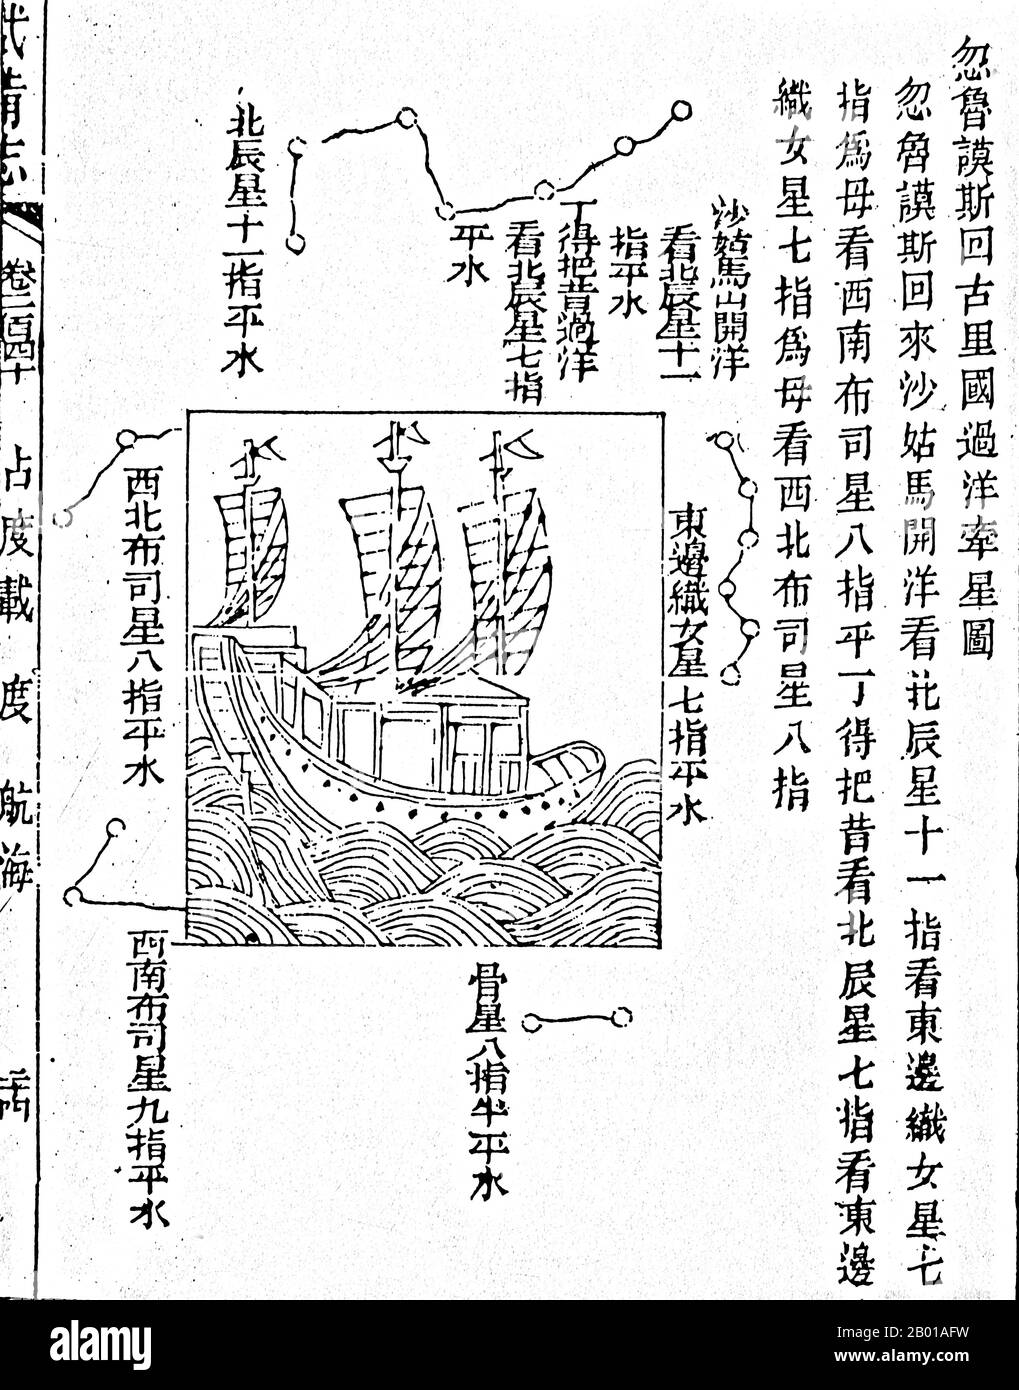 忽魯謨斯回古里國過洋牽星圖
忽魯謨斯回來沙姑馬開洋看北辰星十一指看東邊織女星七
指為母看西南布司星八指平丁得把昔看北辰星七指看東邊
織女星七指為母看西北布司星八指
沙姑馬山開洋
看北辰星十一
指平水
丁得把昔過洋
看北辰星七指
平水
北辰星十一指平水
東邊織女星七指平水
西北布司星八指平水
骨星八指半平水
西南布司星九指平水
武備志
卷二百四十
占度載
度
航海
alamy
Image ID: 2B01AFW
www.alamy.com